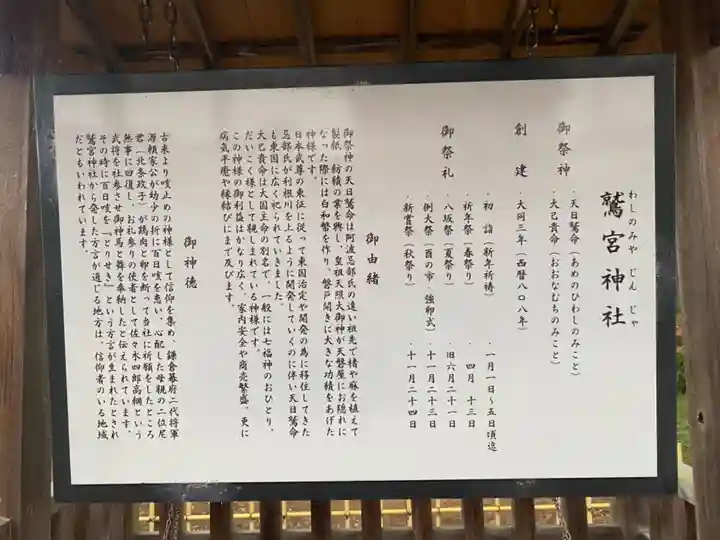 わしのみや じん じゃ
鷲宮神社
御祭神 ・天日鷲命(あめのひわしのみこと)
・大己貴命(おおなむちのみこと)
創建 ・大同三年(西暦八〇八年)
御祭礼 ・初詣(新年祈祷) ・一月一日~五日頃迄
・祈年祭(春祭) ・四月十三日
・八坂祭(夏祭り) ・旧六月二十一日
・例大祭(酉の市 強卵式) ・十一月二十三日
・新嘗祭(秋祭り) ・十一月二十四日
御由緒
御祭神の天日鷲命は阿波忌部氏の遠い祖先で楮や麻を植えて
製紙・紡績の業を興し、皇祖天照大御神が天磐屋にお隠れに
なった際には白和幣を作り、磐戸開きに大きな功績をあげた
神様です。
日本武尊の東征に従って東国治定や開発の為に移住してきた
忌部氏が利根川を上るように開発していくのに伴い天日鷲命
も東国に広く祀られていきました。
大己貴命は大国主命の別名で、一般には七福神のおひとり、
だいこく様として親しまれている神様です。
この神様の御利益はかなり広く、家内安全や商売繁盛、更に
病気平癒や縁結びにまで及びます。
御神徳
古来より咳止めの神様として信仰を集め、鎌倉幕府二代将軍
源頼家公が幼少の折に百日咳を患い、心配した母親の二位尼
君(北条政子)が鶏肉と卵を断って当社に祈願をしたところ
無事に回復し、お礼参りの使者として佐々木四郎高綱という
武将を社参させ御神馬と舞を奉納したと伝えられています。
その時に百日咳を『とりせき』という方言が生まれたとされ
鷲宮神社から発した方言が通じる地方は、信仰者のいる地域
だともいわれています。